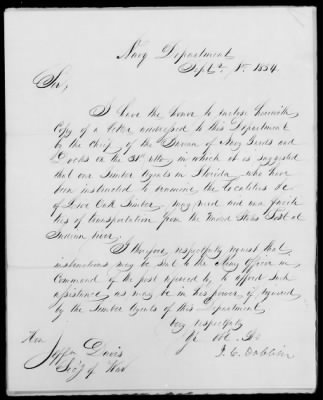 Navy Department
Sept. 1st 1854.
Sir,
I have the honor to enclose herewith
Copy of a letter addressed to this Department
by the Chief of the Bureau of Navy Yards and
Docks on the 31st ulto, in which it is suggested
that our Timber Agents in Florida, who have
been instructed to examine the localities &c
of Live Oak Timber, may need and use facili
ties of transportation from the United States Post at
Indian river.
I therefore, respectfully request that
instructions may be sent to the Army Officer in
Command of the post referred to, to afford such
assistance as may be in his power, if required
by the Timber Agents of this Department.
Very respectfully
Yr. Obt. St.
J. C. Dobbin
Hon
Jeffn Davis
Sec'y of War